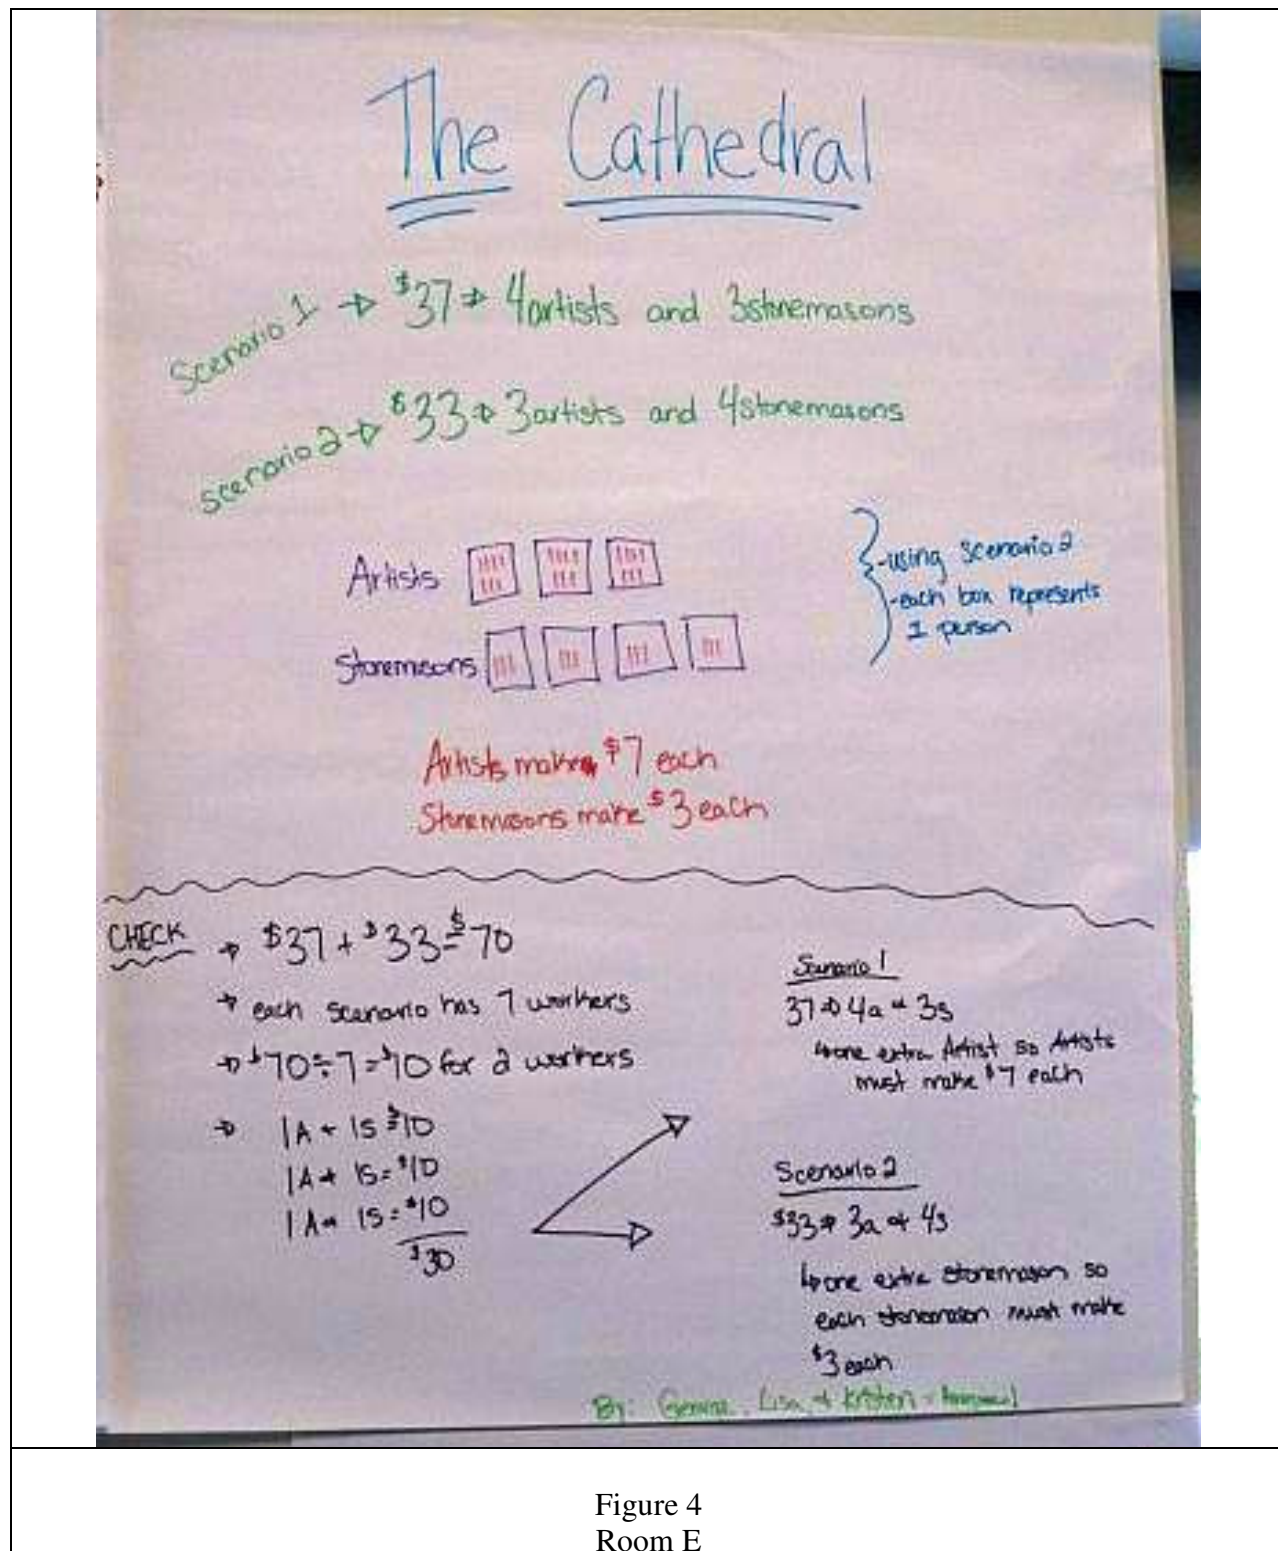 The Cathedral
Scenario 1 → $37 → 4artists and 3stonemasons
scenario 2 → $33 → 3artists and 4stonemasons
Artists
Stonemasons
-using scenario 2
-each box represents
1 person
Artists make $7 each
Stonemasons make $3 each
CHECK → $37 + $33 = $70
→ each scenario has 7 workers
→ $70 ÷ 7 = $10 for 2 workers
→ 1A + 1S = $10
1A + 1S = $10
1A + 1S = $10
$30
Scenario 1
37 → 4a + 3s
↳ one extra Artist so Artists
must make $7 each
Scenario 2
$33 → 3a + 4s
↳ one extra stonemason so
each stonemason must make
$3 each
By: Lisa, + Kristen
Figure 4
Room E